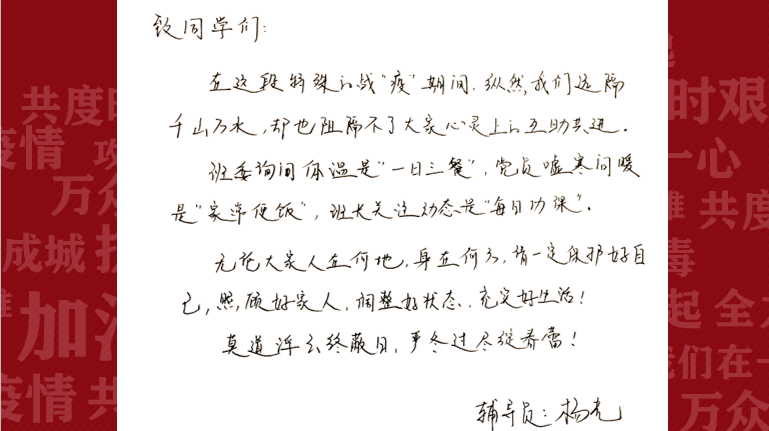 致同学们:
在这段特殊的战"疫"期间,纵然我们远隔
千山万水,却也阻隔不了大家心灵上的互助共进.
班委询问体温是"一日三餐",党员嘘寒问暖
是"家常便饭",班长关注动态是"每日功课".
无论大家人在何地,身在何方,请一定保护好自
己,照顾好家人,调整好状态,充实好生活!
莫道浮云终蔽日,严冬过尽绽春蕾!
辅导员:杨光
共度时
疫情 攻
万众
成城 抗
加油
疫情 共
时艰
一心
共度
毒
起 全力
我们在一
万众